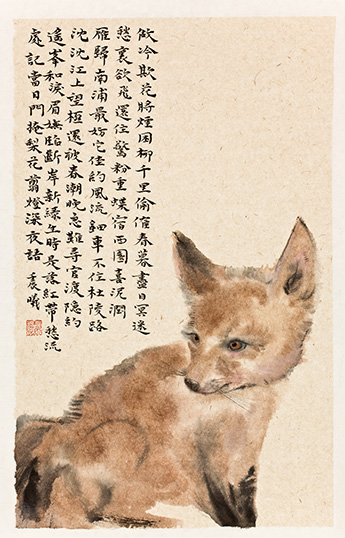 做冷欺花將煙困柳千里偷催春暮盡日冥迷
愁裏欲飛還住驚粉重蝶宿西園喜泥潤
雁歸南浦最妨它佳約風流鈿車不住杜陵路
沈沈江上望極還被春潮晚急難尋官渡隱約
遙峯和淚眉嫵臨斷岸新綠生時是落紅帶愁流
處記當日門掩梨花翦燈深夜語 晨曦